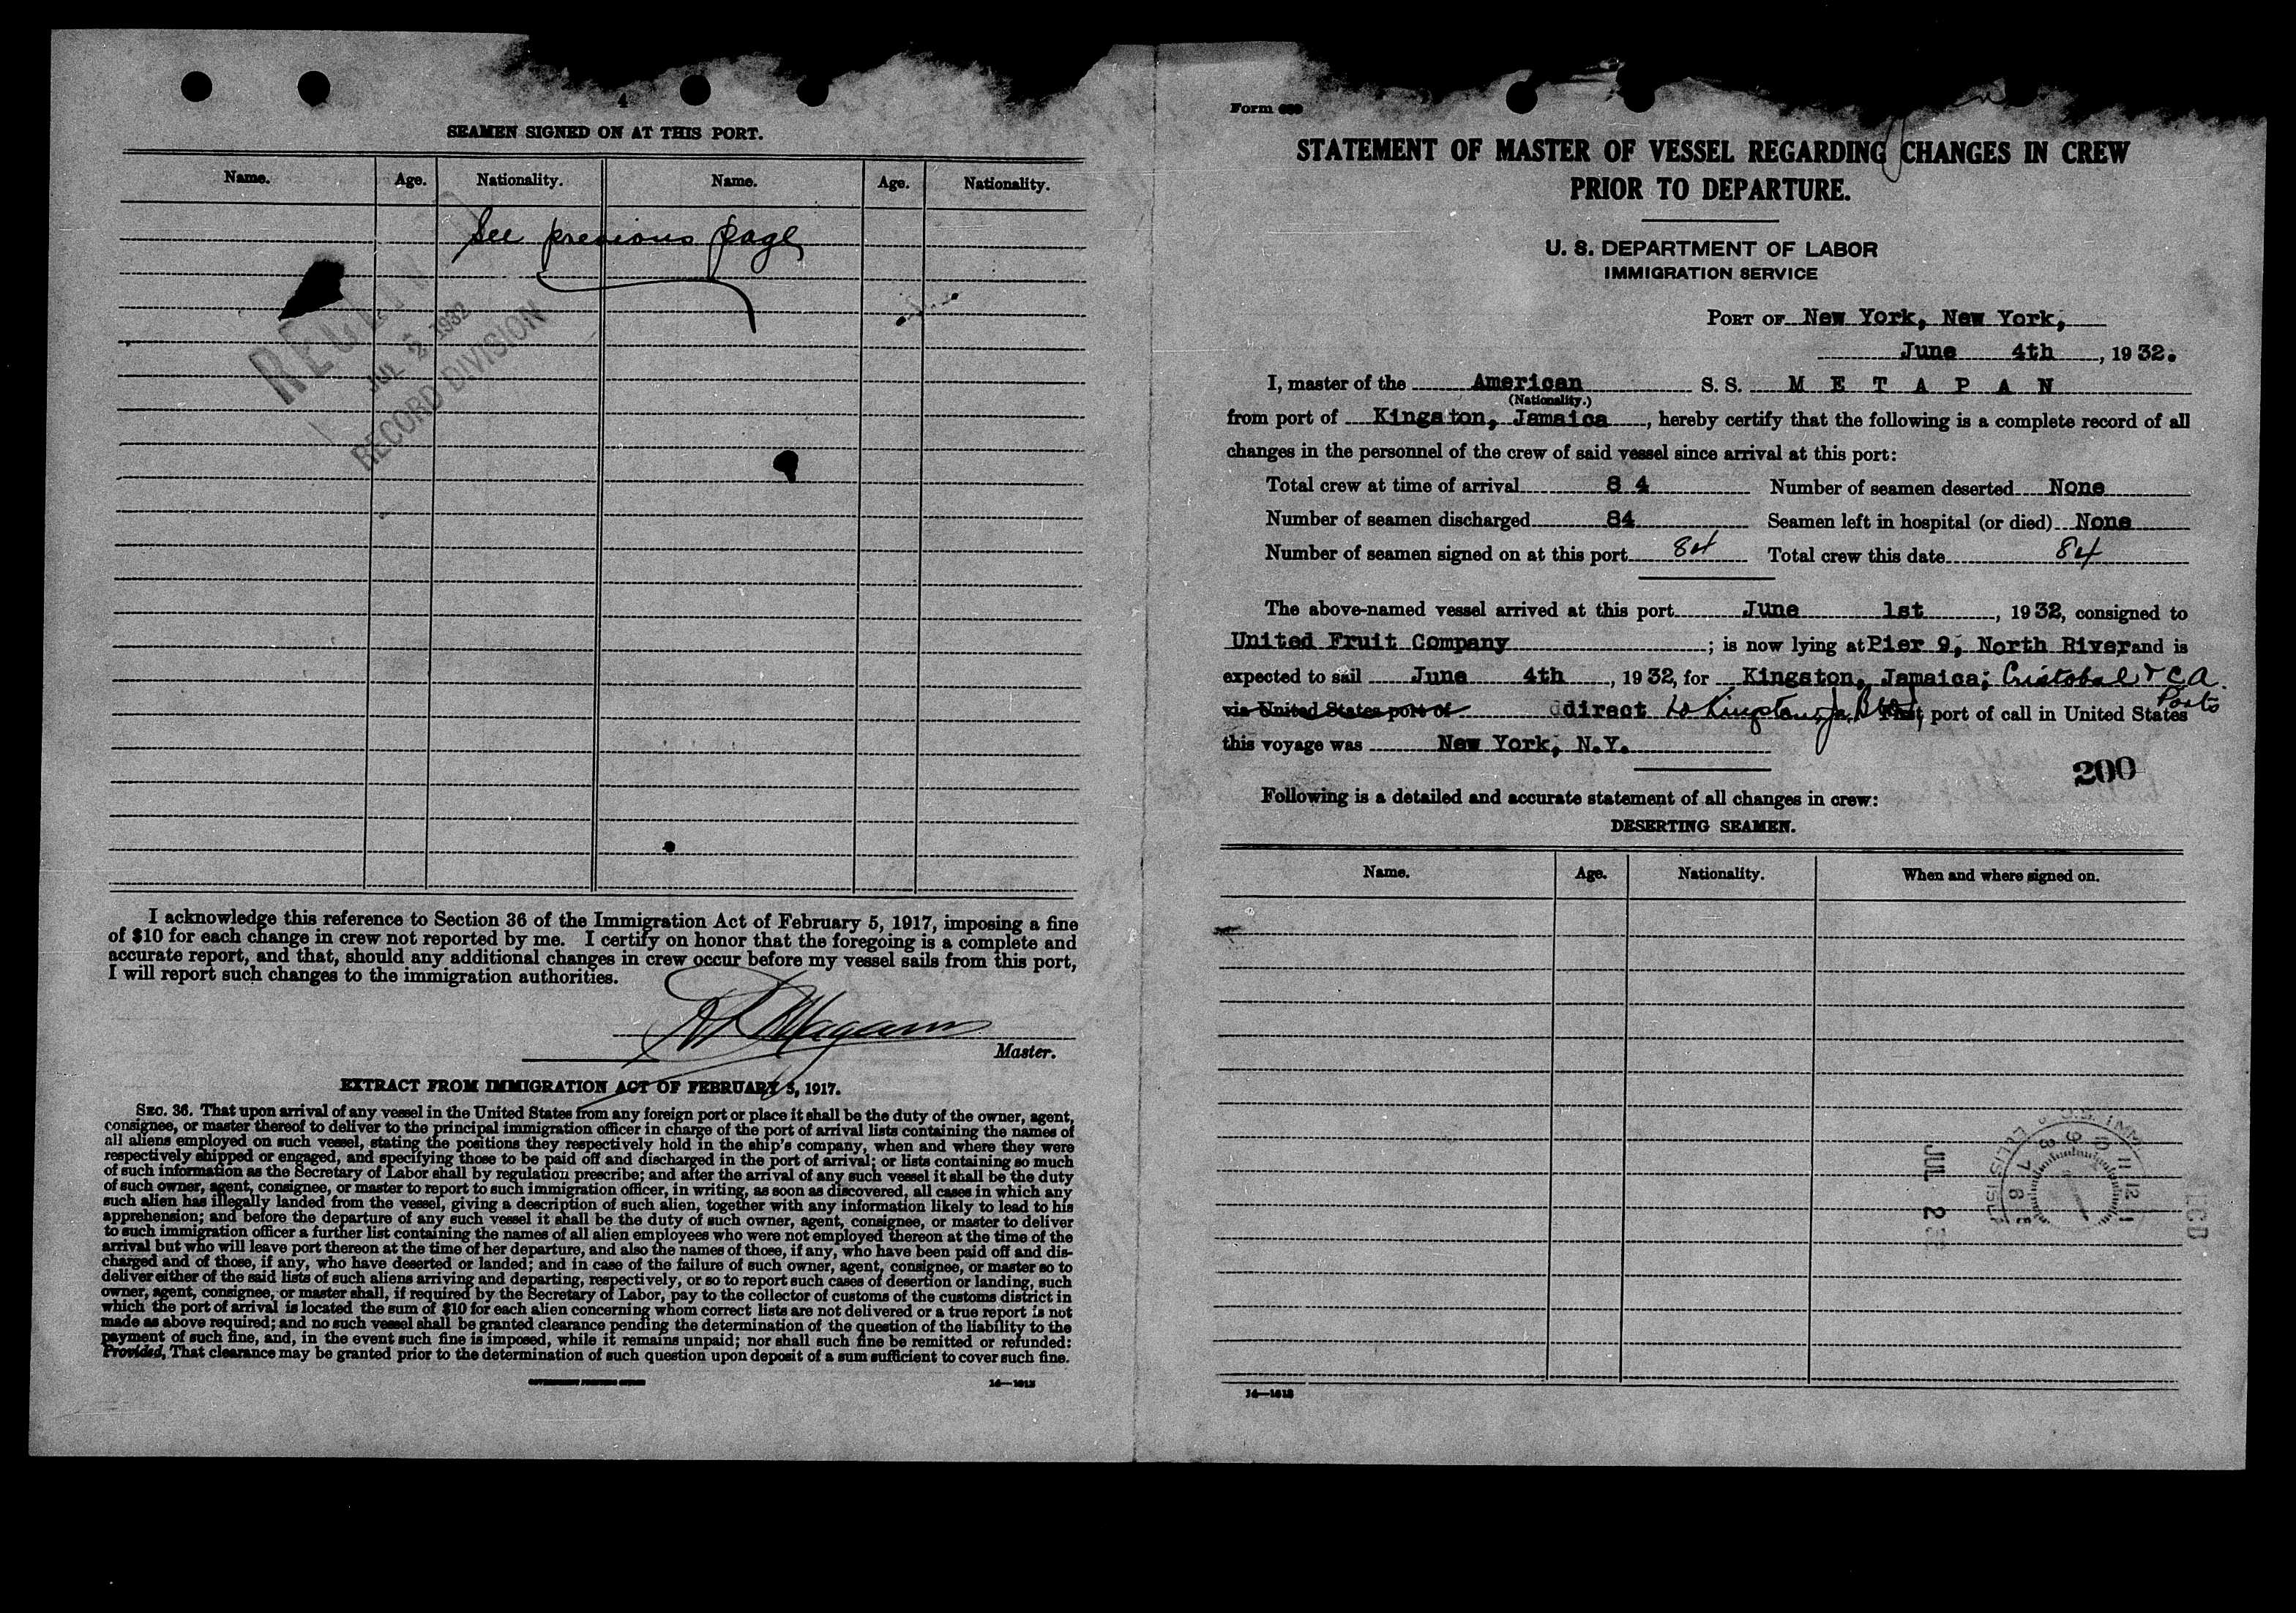 4
SEAMEN SIGNED ON AT THIS PORT.
Name. Age. Nationality. Name. Age. Nationality.
See previous page
JUL 2 1932
RECORD DIVISION
I acknowledge this reference to Section 36 of the Immigration Act of February 5, 1917, imposing a fine
of $10 for each change in crew not reported by me. I certify on honor that the foregoing is a complete and
accurate report, and that, should any additional changes in crew occur before my vessel sails from this port,
I will report such changes to the immigration authorities.
Master.
EXTRACT FROM IMMIGRATION ACT OF FEBRUARY 5, 1917.
SEC. 36. That upon arrival of any vessel in the United States from any foreign port or place it shall be the duty of the owner, agent,
consignee, or master thereof to deliver to the principal immigration officer in charge of the port of arrival lists containing the names of
all aliens employed on such vessel, stating the positions they respectively hold in the ship's company, when and where they were
respectively shipped or engaged, and specifying those to be paid off and discharged in the port of arrival; or lists containing so much
of such information as the Secretary of Labor shall by regulation prescribe; and after the arrival of any such vessel it shall be the duty
of such owner, agent, consignee, or master to report to such immigration officer, in writing, as soon as discovered, all cases in which any
such alien has illegally landed from the vessel, giving a description of such alien, together with any information likely to lead to his
apprehension; and before the departure of any such vessel it shall be the duty of such owner, agent, consignee, or master to deliver
to such immigration officer a further list containing the names of all alien employees who were not employed thereon at the time of the
arrival but who will leave port thereon at the time of her departure, and also the names of those, if any, who have been paid off and dis-
charged and of those, if any, who have deserted or landed; and in case of the failure of such owner, agent, consignee, or master so to
deliver either of the said lists of such aliens arriving and departing, respectively, or so to report such cases of desertion or landing, such
owner, agent, consignee, or master shall, if required by the Secretary of Labor, pay to the collector of customs of the customs district in
which the port of arrival is located the sum of $10 for each alien concerning whom correct lists are not delivered or a true report is not
made as above required; and no such vessel shall be granted clearance pending the determination of the question of the liability to the
payment of such fine, and, in the event such fine is imposed, while it remains unpaid; nor shall such fine be remitted or refunded:
Provided, That clearance may be granted prior to the determination of such question upon deposit of a sum sufficient to cover such fine.
GOVERNMENT PRINTING OFFICE 14—1613
Form
STATEMENT OF MASTER OF VESSEL REGARDING CHANGES IN CREW
PRIOR TO DEPARTURE.
U. S. DEPARTMENT OF LABOR
IMMIGRATION SERVICE
PORT OF New York, New York,
June 4th, 1932.
I, master of the American S. S. M E T A P A N
(Nationality.)
from port of Kingston, Jamaica, hereby certify that the following is a complete record of all
changes in the personnel of the crew of said vessel since arrival at this port:
Total crew at time of arrival 8 4 Number of seamen deserted None
Number of seamen discharged 84 Seamen left in hospital (or died) None
Number of seamen signed on at this port 84 Total crew this date 84
The above-named vessel arrived at this port June 1st, 1932, consigned to
United Fruit Company; is now lying at Pier 9, North River and is
expected to sail June 4th, 1932, for Kingston, Jamaica; Cristobal & C A.
Ports
via United States port of direct to Kingston, Ja. First port of call in United States
this voyage was New York, N.Y.
200
Following is a detailed and accurate statement of all changes in crew:
DESERTING SEAMEN.
Name. Age. Nationality. When and where signed on.
JUL 2
14—1613